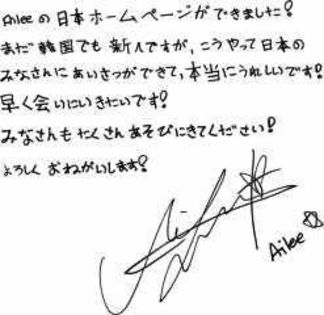 Aileeの日本ホームページができました!
まだ韓国でも新人ですが、こうやって日本の
みなさんにあいさつができて、本当にうれしいです!
早く会いにいきたいです!
みなさんもたくさんあそびにきてください!
よろしくおねがいします!
Ailee